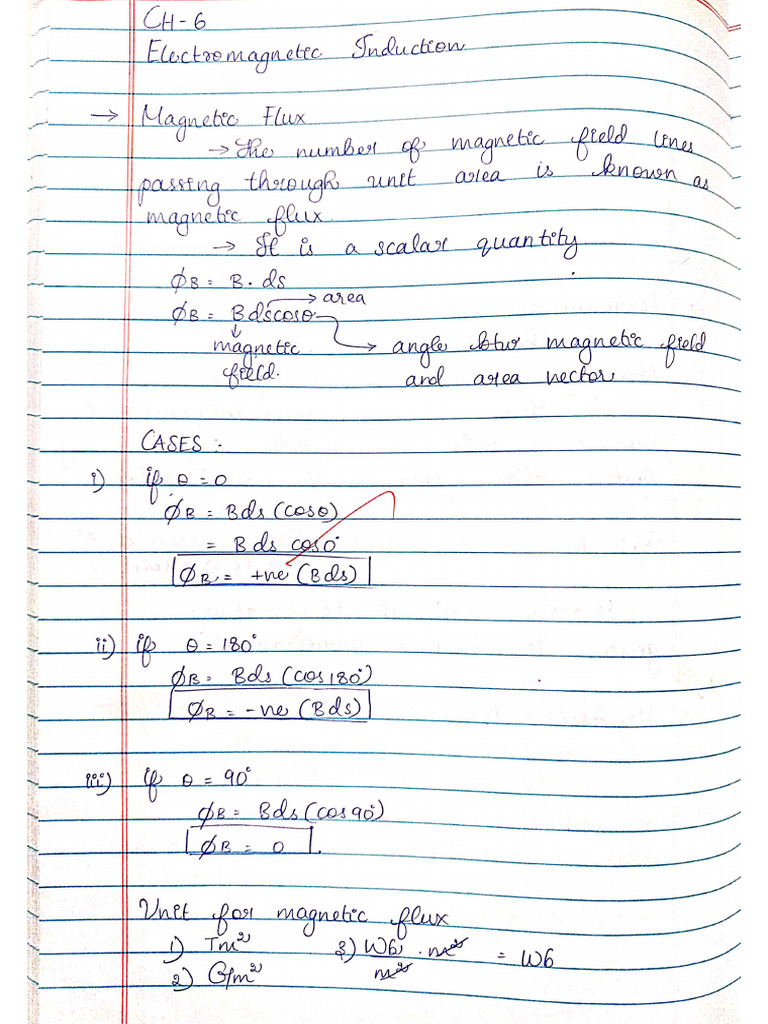 CH-6
Electromagnetic Induction
→ Magnetic Flux
→ The number of magnetic field lines
passing through unit area is known as
magnetic flux.
→ It is a scalar quantity
ϕB = B · ds
→ area
ϕB = Bdscosθ
magnetic
field.
→ angle btw magnetic field
and area vector
CASES :
i) if θ = 0
ϕB = Bds (cosθ)
= Bds cos0°
ϕB = +ve (Bds)
ii) if θ = 180°
ϕB = Bds (cos180°)
ϕB = -ve (Bds)
iii) if θ = 90°
ϕB = Bds (cos90°)
ϕB = 0 .
Unit for magnetic flux
1) Tm² 3) Wb/m² · m² = Wb
2) G/m²